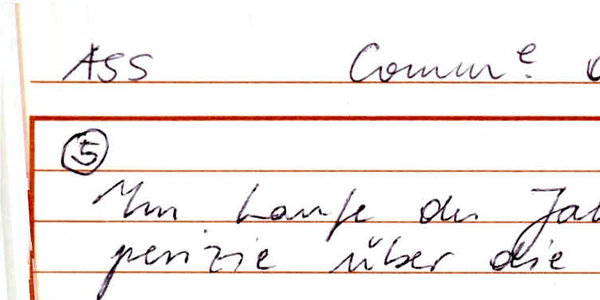 ASS Comm.e
⑤
Im Laufe der Jah
perizie über die